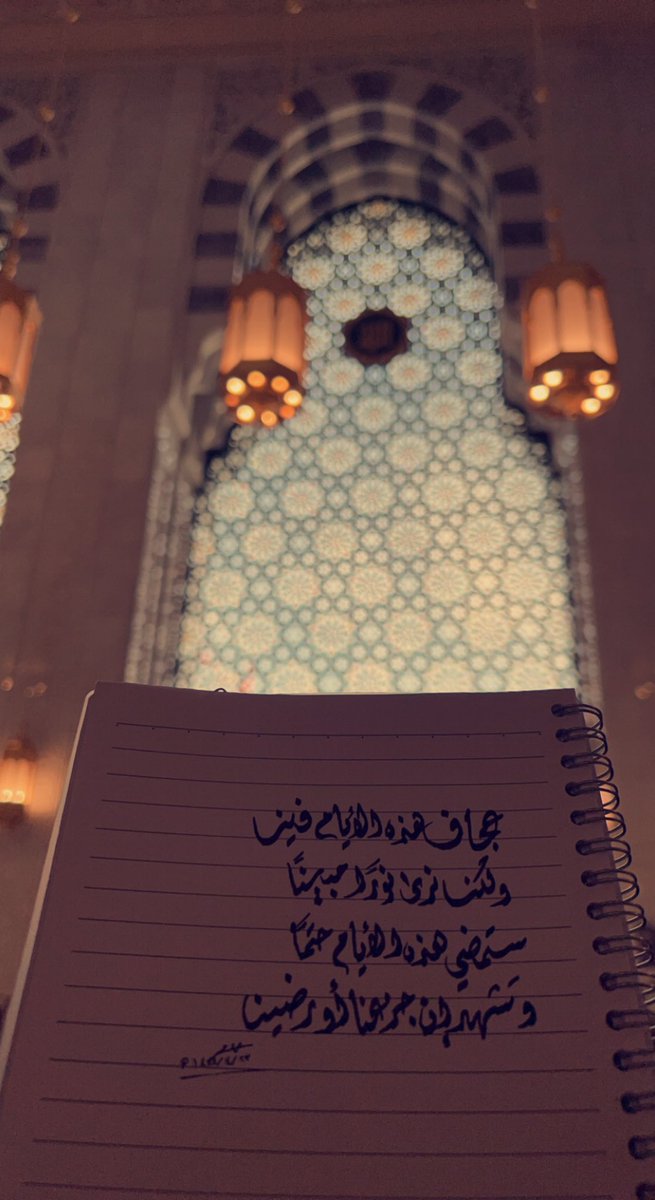 عجاف هذه الأيام فينا
ولكنا نرى نورًا مبينًا
ستمضي هذه الأيام حتمًا
وتشهد إن جزعنا أو رضينا